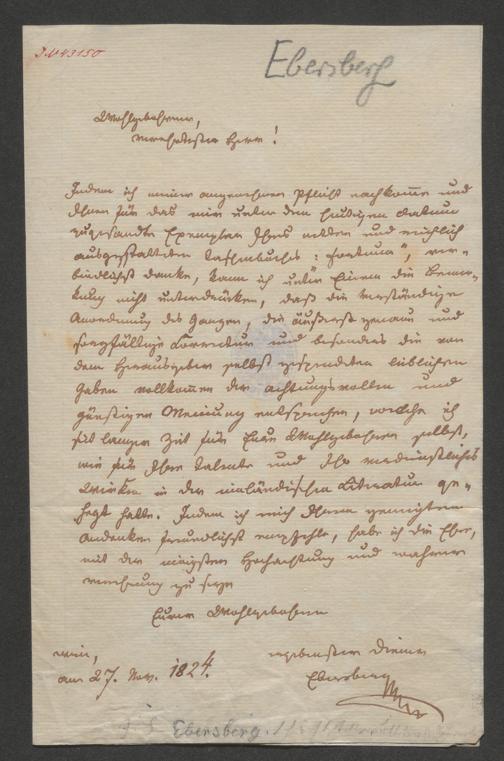 I.N 43150
Ebersberg
Wohlgebohrner,
verehrtester Herr!
Indem ich meiner angenehmen Pflicht nachkomme und
Ihnen für das mir unter dem heutigen Datum
zugesandte Exemplar Ihres netten und reichlich
ausgestatteten Taschenbuches: „Fortuna", ver-
bindlichst danke, kann ich unter Einem die Bemer-
kung nicht unterdrücken, daß die verständige
Anordnung des Ganzen, die äußerst genaue und
sorgfältige Correctur und besonders die von
dem Herausgeber selbst gespendeten lieblichen
Gaben vollkommen der achtungsvollen und
günstigen Meinung entsprechen, welche ich
seit langer Zeit für Eure Wohlgebohren selbst,
wie für Ihre Talente und Ihr verdienstliches
Wirken in der inländischen Literatur ge-
hegt hatte. Indem ich mich Ihrem geneigten
Andenken freundlichst empfehle, habe ich die Ehre,
mit der innigsten Hochachtung und wahrer
Verehrung zu seyn
Eurer Wohlgebohren
Wien,
am 27. Nov. 1824.
ergebenster Diener
Ebersberg
Ebersberg.